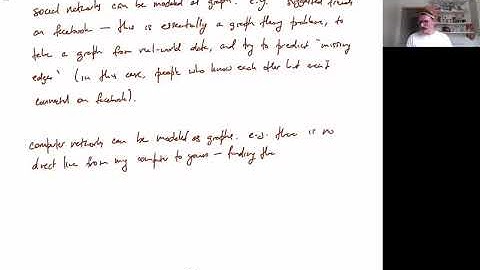 social networks can be modeled as graphs. e.g. suggested friends
on facebook — this is essentially a graph theory problem, to
take a graph from real-world data, and try to predict "missing
edges" (in this case, people who know each other but aren't
connected on facebook).
computer networks can be modeled as graphs. e.g. there is no
direct line from my computer to yours — finding the